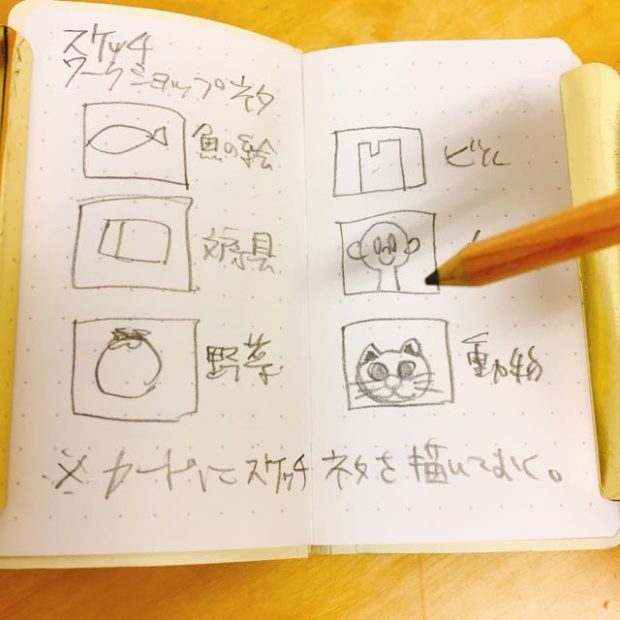 スケッチ
ワークショップネタ
魚の絵
文房具
野菜
ビル
動物
※カードにスケッチネタを描いておく。